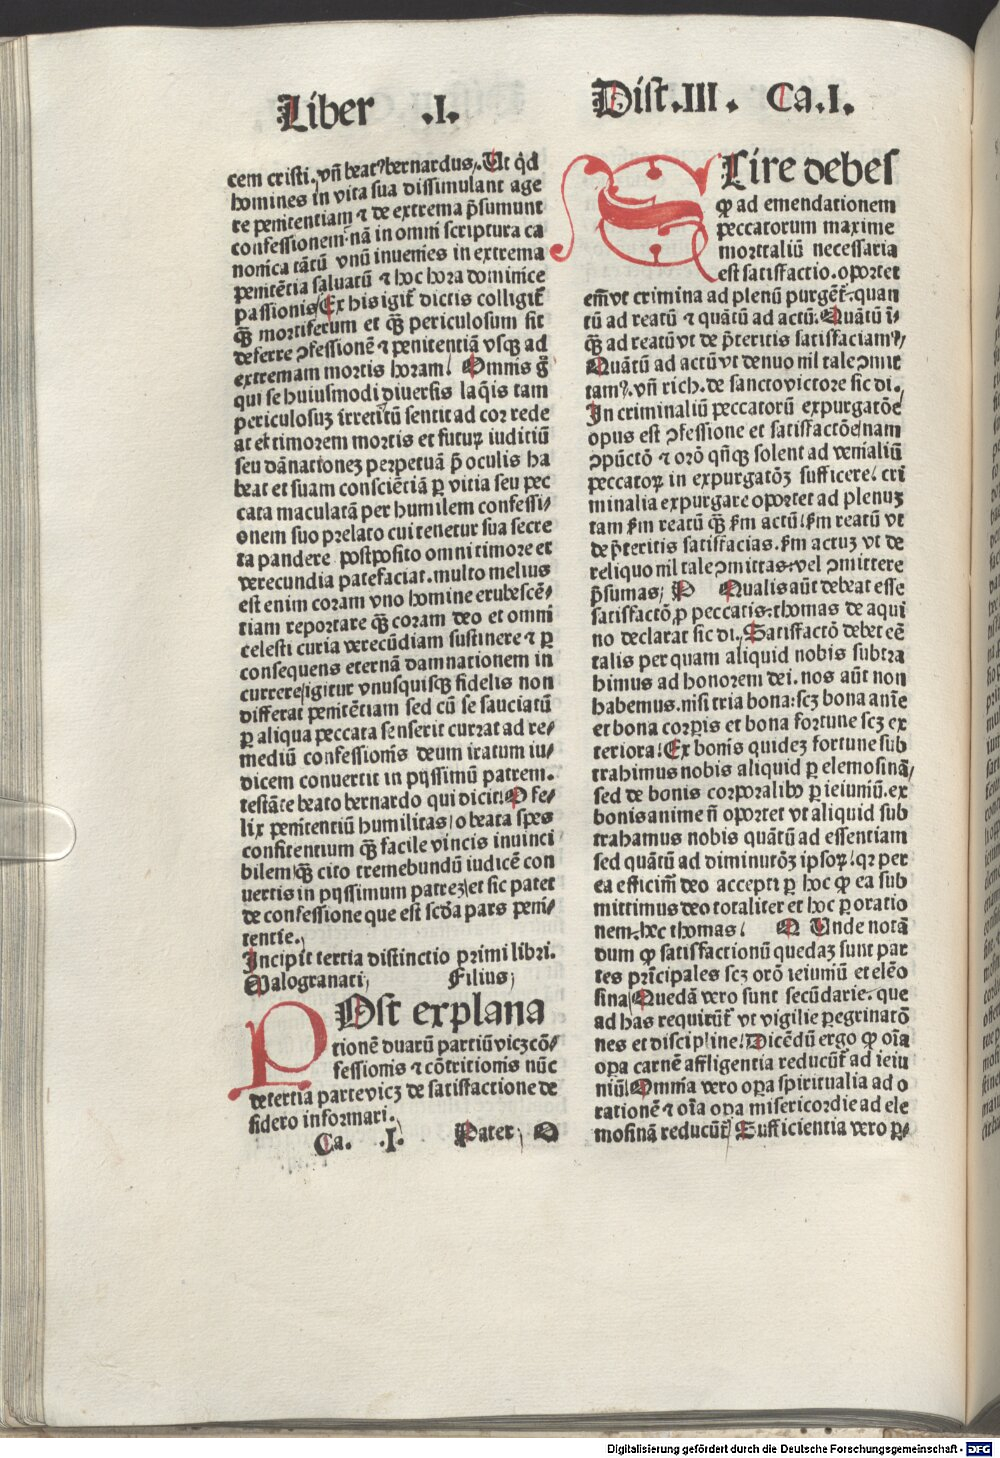 Liber .I.
Dist.III. Ca.I.
cem cristi. vñ beatꝰ bernardus. Ut qd̓
homines in vita sua dissimulant age
re penitentiam ⁊ de extrema p̃sumunt
confessionem. nã in omni scriptura ca
nonica tãtũ vnũ inuenies in extrema
penitẽtia saluatũ ⁊ hoc hora dominice
passionis/ Ex his igit̃ dictis colligit̃
qꝫ̃ mortiferum et qꝫ̃ periculosum sit
deferre ɔfessionẽ ⁊ penitentiã vsqꝫ ad
extremam mortis horam. Omnis g̃
qui se huiusmodi diuersis laq̃is tam
periculosuꝫ irretitũ sentit ad cor rede
at et timorem mortis et futuꝝ iuditiũ
seu dãnationeꝫ perpetuã p̃ oculis ha
beat et suam consciẽtiã ꝑ vitia seu pec
cata maculatã per humilem confessi⸗
onem suo prelato cui tenetur sua secre
ta pandere postposito omni timore et
verecundia patefaciat. multo melius
est enim coram vno homine erubescẽ⸗
tiam reportare qꝫ̃ coram deo et omni
celesti curia verecũdiam sustinere ⁊ ꝑ
consequens eternã damnationem in
currere/ igitur vnusquisqꝫ fidelis non
differat penitẽtiam sed cũ se sauciatũ
ꝑ aliqua peccata senserit currat ad re⸗
mediũ confessionis deum iratum iu⸗
dicem conuertit in pijssimũ patrem.
testãte beato bernardo qui dicit: O fe⸗
lix penitentiũ humilitas/ o beata spes
confitentium qꝫ̃ facile vincis inuinci
bilem/ qꝫ̃ cito tremebundũ iudicẽ con
uertis in pijssimum patreꝫ/ et sic patet
de confessione que est scd̓a pars peni⸗
tentie.
Incipit tertia distinctio primi libri.
Malogranati; Filius;
POst explana
tionẽ duarũ partiũ vicꝫ cõ⸗
fessionis ⁊ cõtritionis nũc
de tertia parte vicꝫ de satisfactione de
sidero informari.
Ca. .I. Pater; O
SCire debes
ꝙ ad emendationem
peccatorum maxime
mortaliũ necessaria
est satisfactio. oportet
em̃ vt crimina ad plenũ purgẽt̃. quan
tũ ad reatũ ⁊ quãtũ ad actũ. Quãtũ i⸗
qꝫ̃ ad reatũ vt de p̃teritis satisfaciam?/
Quãtũ ad actũ vt denuo nil tale ɔmit
tam?. vñ rich. de sancto victore sic di.
In criminaliũ peccatorũ expurgatõe
opus est ɔfessione et satisfactõe/ nam
ɔpũctõ ⁊ orõ qñqꝫ solent ad venialiũ
peccatoꝝ in expurgatõꝫ sufficere. cri
minalia expurgare oportet ad plenuꝫ
tam ẜm reatũ qꝫ̃ ẜm actũ/ ẜm reatũ vt
de p̃teritis satisfacias. ẜm actuꝫ vt de
reliquo nil tale ɔmittas. vel ɔmittere
p̃sumas; P Qualis aũt debeat esse
satisfactõ ꝓ peccatis. thomas de aqui
no declarat sic di. Satisfactõ debet eẽ
talis per quam aliquid nobis subtra
himus ad honorem dei. nos aũt non
habemus. nisi tria bona: scꝫ bona anĩe
et bona corꝑis et bona fortune scꝫ ex
teriora/ Ex bonis quideꝫ fortune sub
trahimus nobis aliquid ꝑ elemosinã/
sed de bonis corporalibꝰ ꝑ ieiuniũ. ex
bonis anime ñ oportet vt aliquid sub
trahamus nobis quãtũ ad essentiam
sed quãtũ ad diminutõꝫ ipsoꝝ/ qꝛ per
ea efficim̃ deo accepti ꝑ hoc ꝙ ea sub
mittimus deo totaliter et hoc ꝑ oratio
nem. hec thomas. Q Unde notã
dum ꝙ satisfactionũ quedaꝫ sunt par
tes prĩcipales scꝫ orõ ieiuniũ et elẽo
sina/ Quedã vero sunt secũdarie. que
ad has requirũt̃ vt vigilie ꝑegrinatõ
nes et discipline/ Dicẽdũ ergo ꝙ oĩa
oꝑa carnẽ affligentia reducũt̃ ad ieiu
niũ/ Omnia vero oꝑa spiritualia ad o
rationẽ ⁊ oĩa oꝑa misericordie ad ele
mosinã reducũt̃/ Sufficientia vero ꝑ⸗
Digitalisierung gefördert durch die Deutsche Forschungsgemeinschaft - DFG